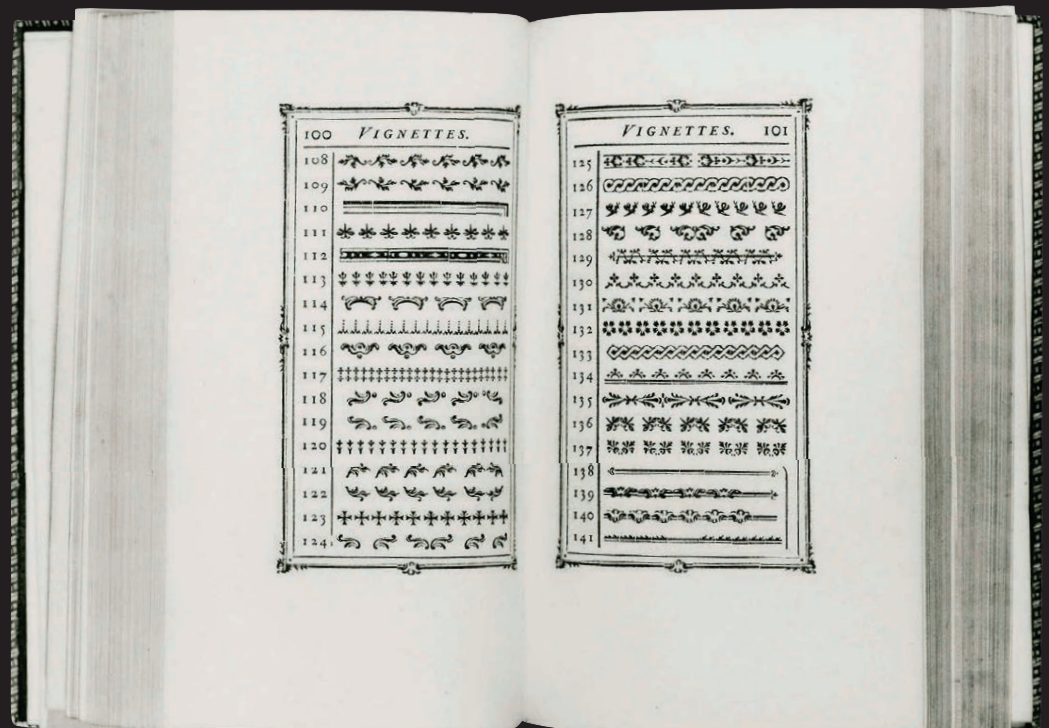 100 VIGNETTES.
108
109
110
111
112
113
114
115
116
117
118
119
120
121
122
123
124
VIGNETTES. 101
125
126
127
128
129
130
131
132
133
134
135
136
137
138
139
140
141